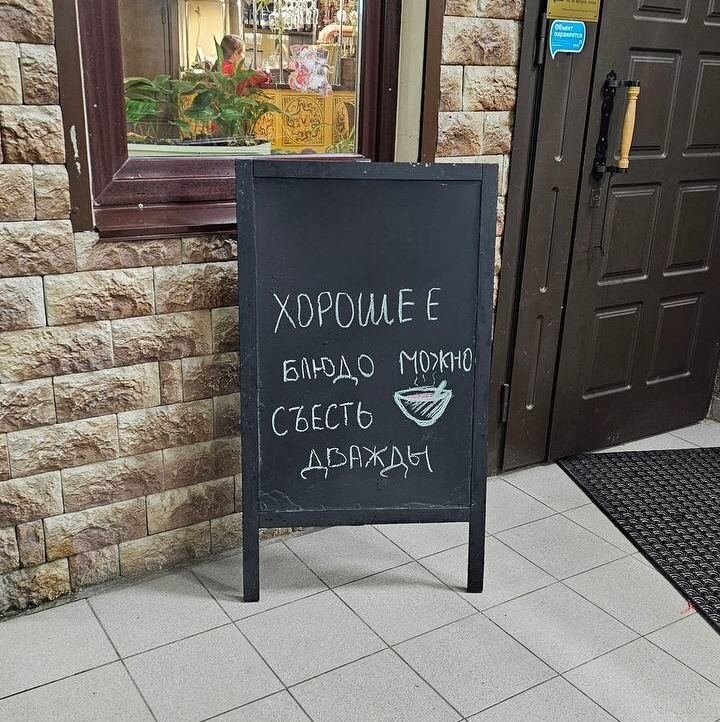 ХОРОШЕЕ
БЛЮДО МОЖНО
СЪЕСТЬ
ДВАЖДЫ
Объект
охраняется